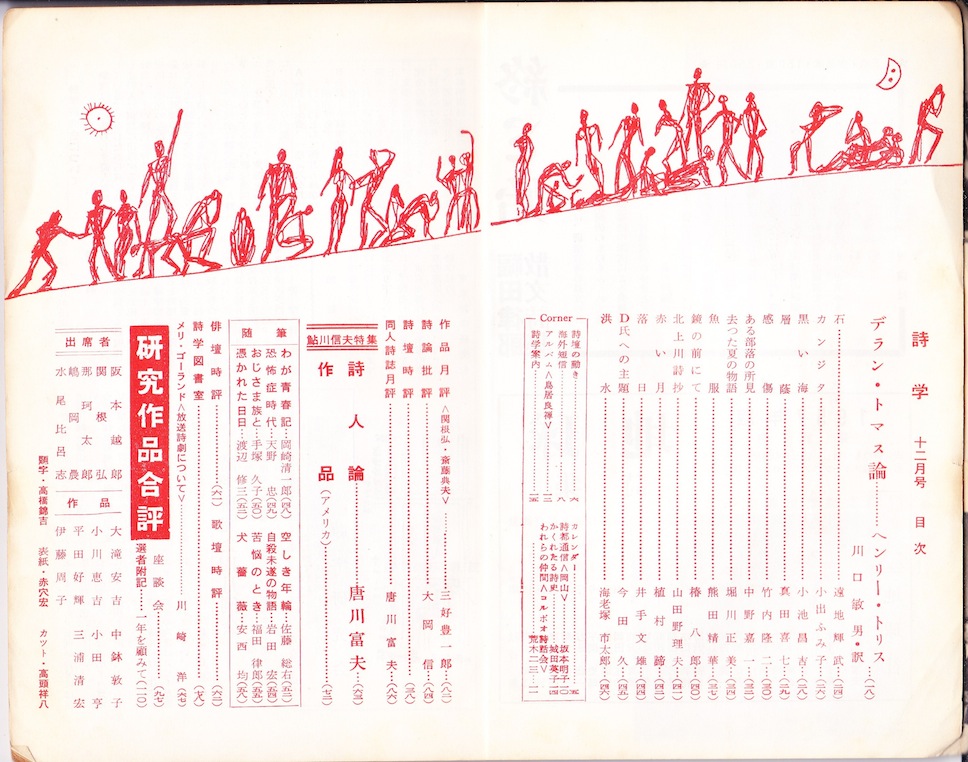 詩学 十二月号 目次
デラン・トマス論……ヘンリー・トリス
川口敏男・訳…(一八)
石……遠地輝武…(二四)
カンジタ……小出ふみ子…(二六)
黒い海……小池昌吉…(二八)
層蔭……真田喜七…(二九)
感傷……竹内隆二…(三〇)
ある部落の所見……中野嘉一…(三二)
去つた夏の物語……堀川正美…(三四)
魚服……熊田精華…(三七)
鏡の前にて……椿八郎…(四〇)
北上川詩抄……山田野理夫…(四一)
赤い月……植村諦…(四二)
落日……井手文雄…(四四)
D氏への主題……今田久…(四五)
洪水……海老塚市太郎…(四六)
Corner
詩壇の動き……六
海外短信……八
アルバム<鳥居良禅>……一二
詩学案内……一五
カレンダー……五
詩都通信<岡山> 坂本明子…一〇
かくれたる詩史……城田英子…一四
われらの仲間<コルボオ詩話会>
荒木二三…一一
作品月評<関根弘・斎藤典夫>……三好豊一郎…(八二)
詩論批評……大岡信…(八四)
詩壇時評……(三八)
同人詩誌月評……唐川富夫…(八六)
鮎川信夫特集
詩人論……唐川富夫…(六三)
作品(アメリカ)……(七三)
随筆
わが青春記…岡崎清一郎(四八)
恐怖症時代…天野忠(四九)
おじさま族と…手塚久子(五〇)
憑かれた日日…渡辺修三(五二)
空しき年輪…佐藤総右(五二)
自殺未遂の物語…岩田宏(五四)
苦悩のとき…福田律郎(五五)
犬薔薇…安西均(五八)
俳壇時評……(六一)
歌壇時評……(六二)
詩学図書室……(七八)
メリ・ゴーランド<放送詩劇について>……川崎洋…(七六)
研究作品合評
座談会…(九七)
選者附記……一年を顧みて(一一〇)
出席者
阪本越郎
関根弘
那珂太郎
嶋岡農
水尾比呂志
作品
大滝安吉
小川恵吉
平田好輝
伊藤周子
中鉢敦子
小田亨
三浦清宏
題字・高橋錦吉
表紙・赤穴宏
カット・高頭祥八